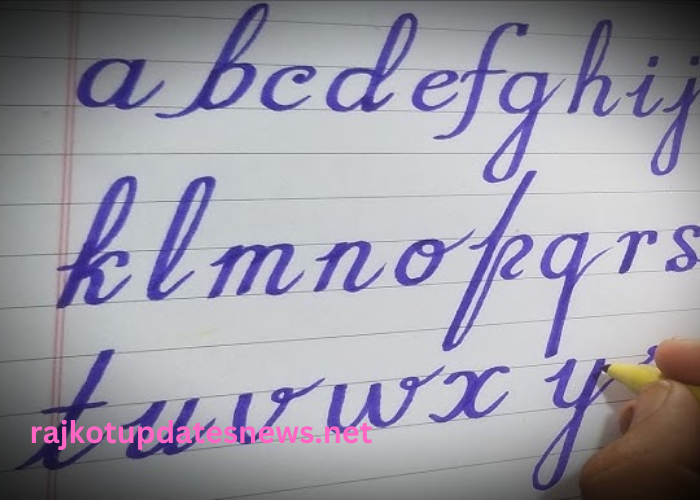 a b c d e f g h i j
k l m n o p q r s
t u v w x y
rajkotupdatesnews.net